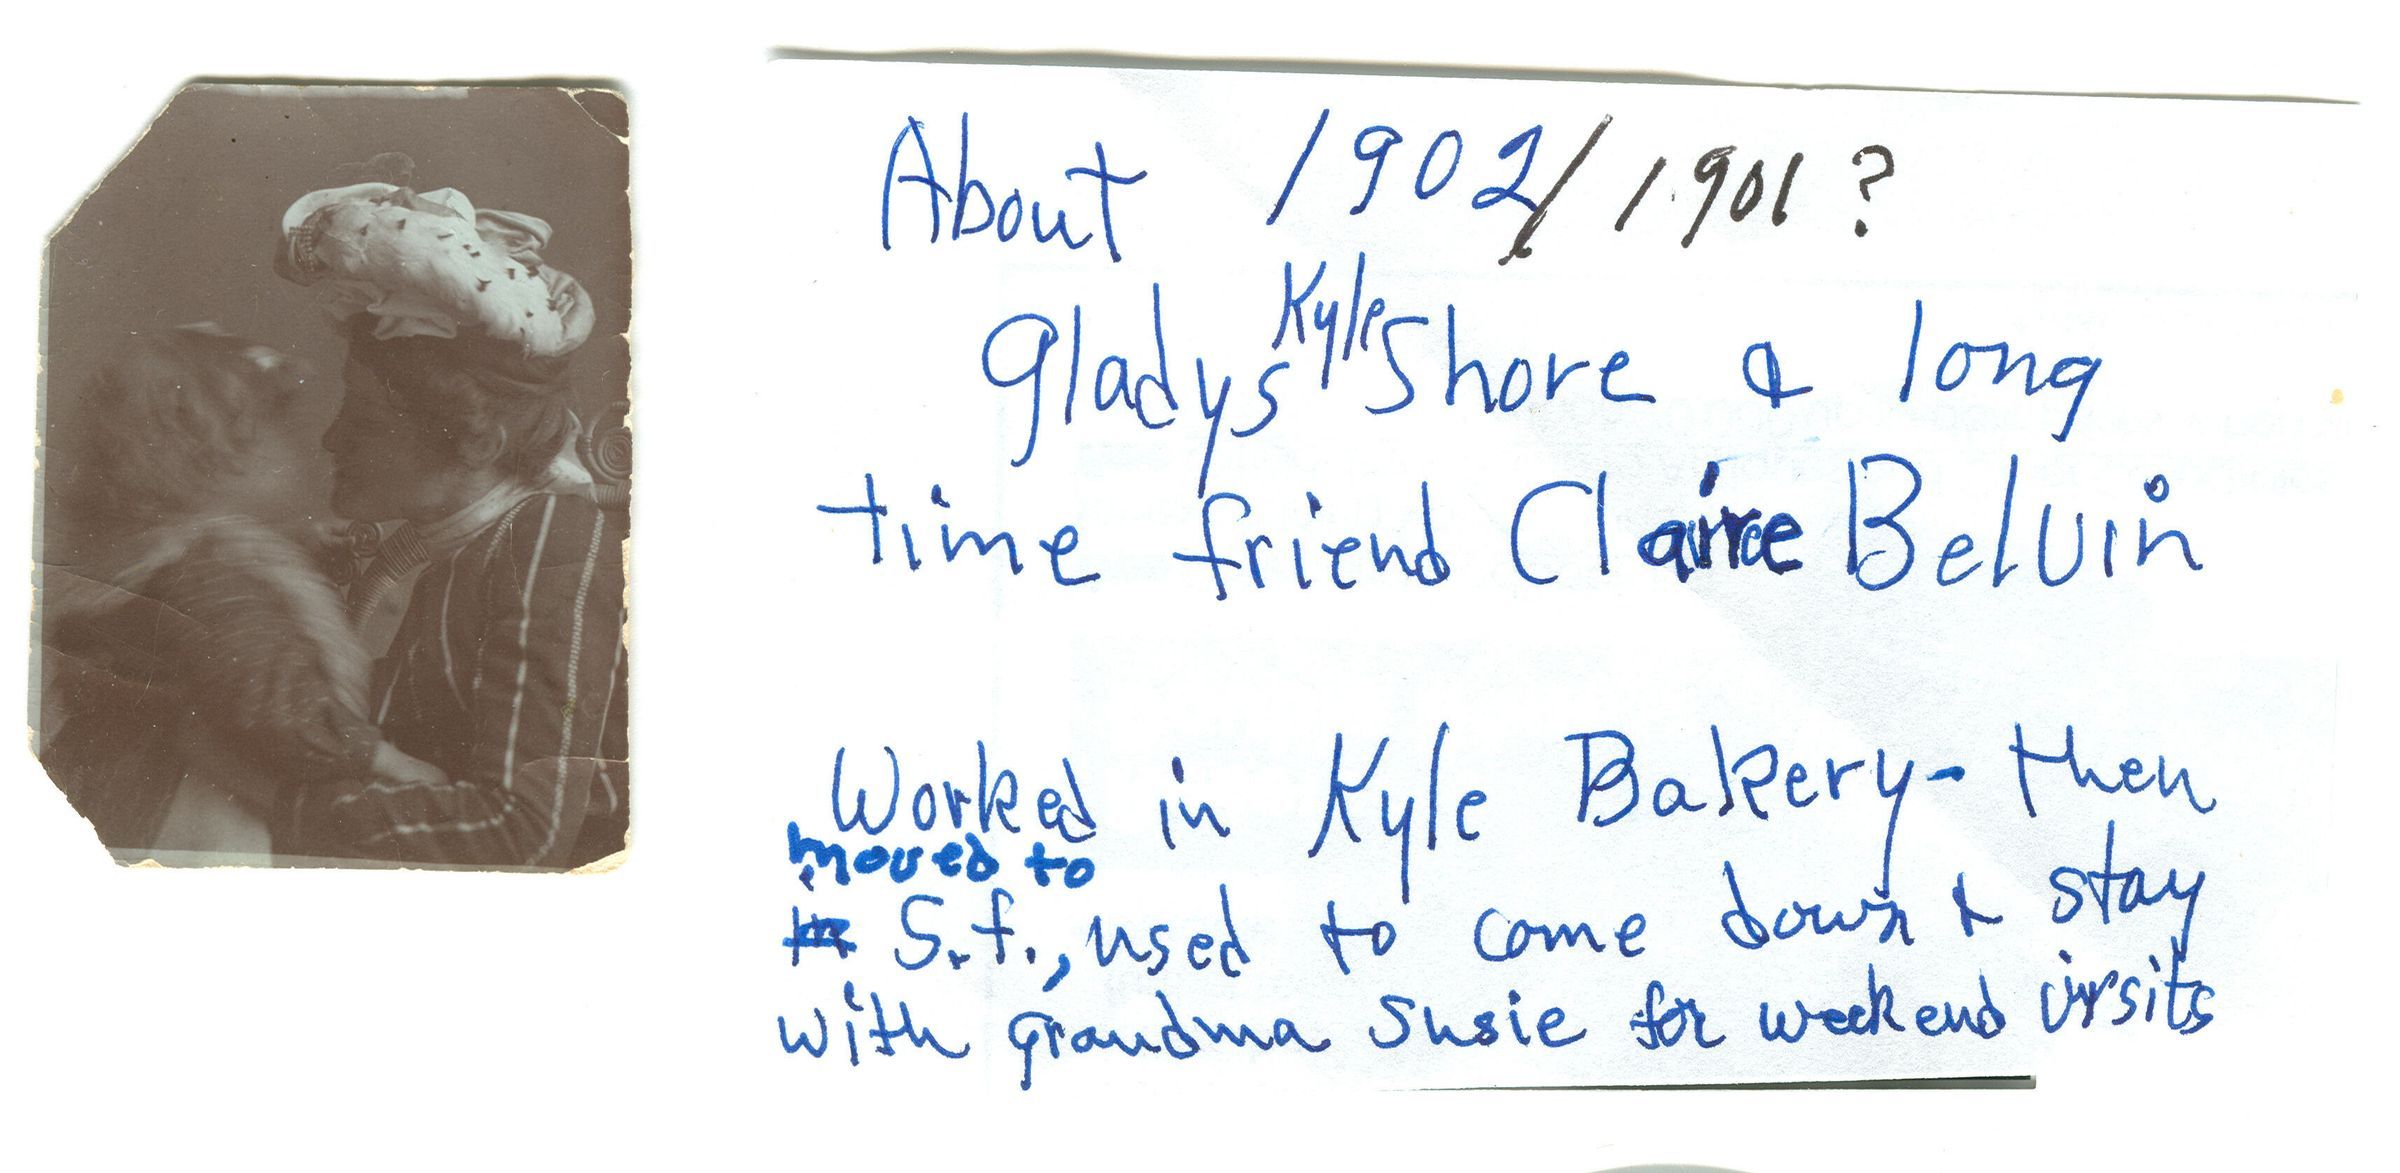 About 1902/1901?
Gladys Kyle Shore & long
time friend Claire Belvin
Worked in Kyle Bakery - then
moved to
S.f., used to come down & stay
with grandma Susie for weekend visits